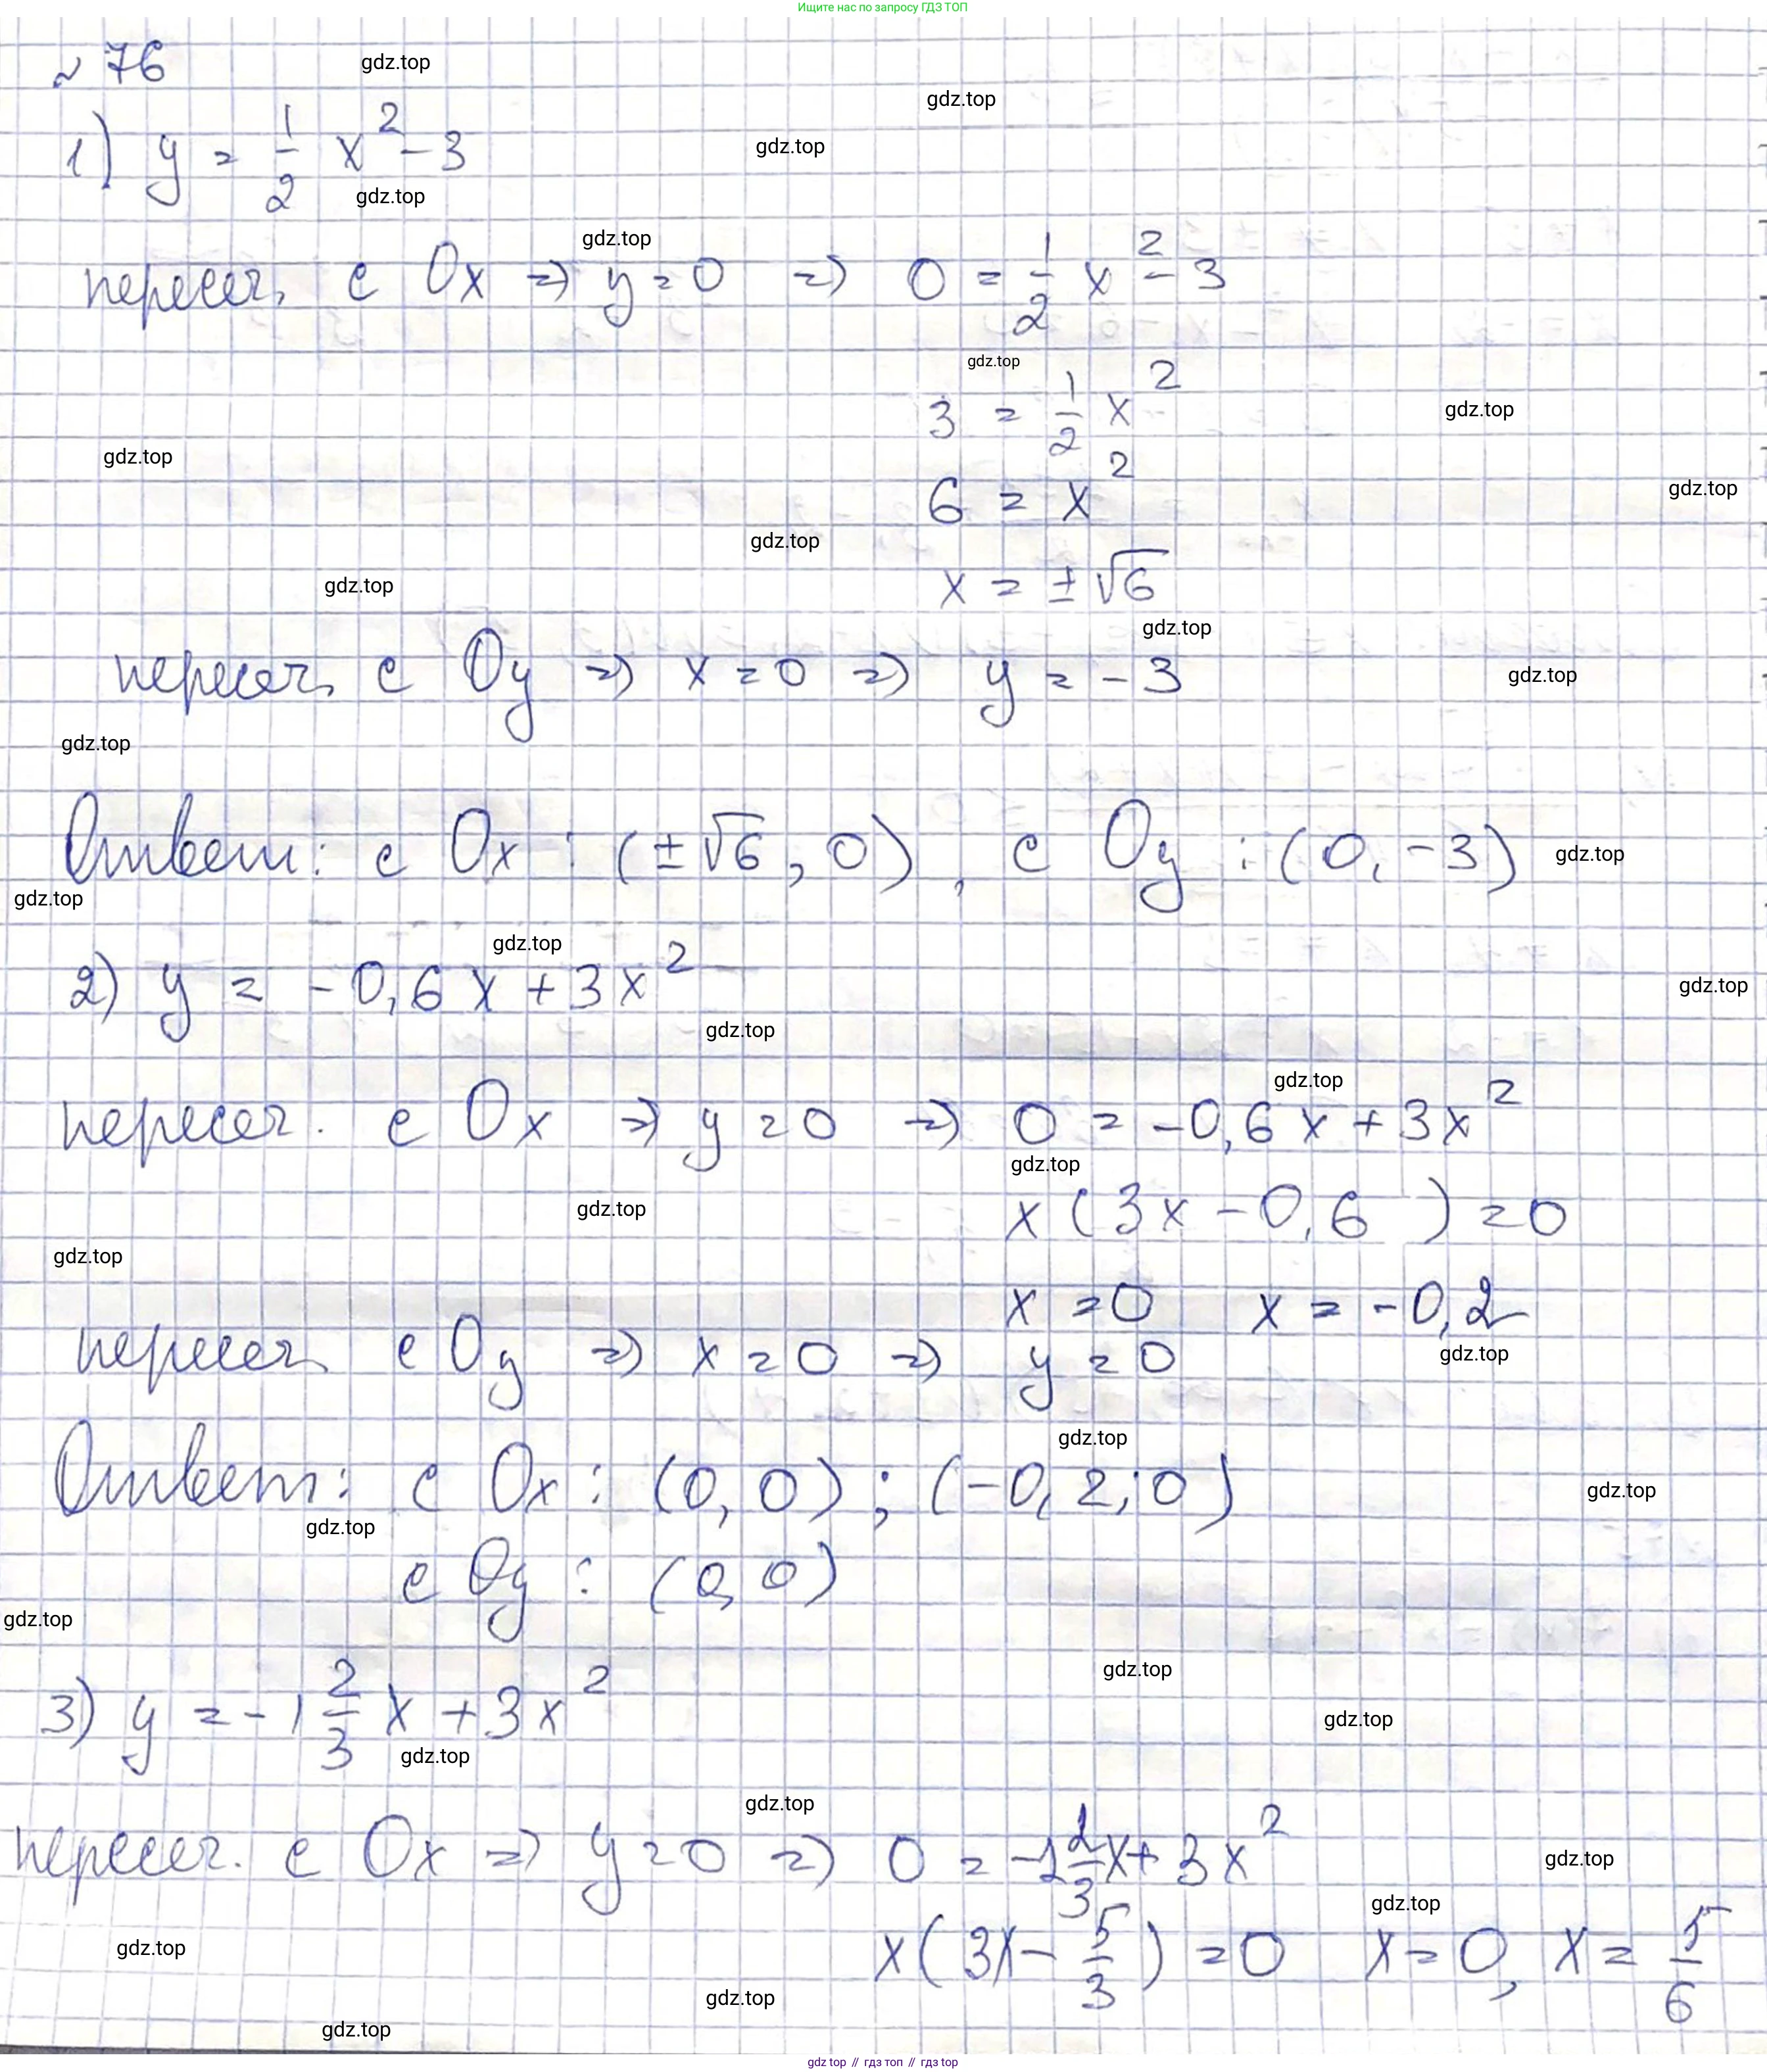 Ищите нас по запросу ГДЗ ТОП
№ 76
gdz.top
gdz.top
1) y = 1/2 x² - 3
gdz.top
gdz.top
gdz.top
пересеч. с Ox => y = 0 => 0 = 1/2 x² - 3
gdz.top
3 = 1/2 x²
gdz.top
gdz.top
6 = x²
gdz.top
gdz.top
gdz.top
x = ±√6
gdz.top
пересеч. с Oy => x = 0 => y = -3
gdz.top
gdz.top
Ответ: с Ox : (±√6, 0), с Oy : (0, -3)
gdz.top
gdz.top
gdz.top
2) y = -0,6x + 3x²
gdz.top
gdz.top
gdz.top
пересеч. с Ox => y = 0 => 0 = -0,6x + 3x²
gdz.top
gdz.top
x (3x - 0,6 ) = 0
gdz.top
x = 0 x = -0,2
пересеч. с Oy => x = 0 => y = 0
gdz.top
gdz.top
Ответ: с Ox : (0, 0) ; (-0,2; 0)
gdz.top
gdz.top
с Oy : (0, 0)
gdz.top
gdz.top
3) y = -1 2/3 x + 3x²
gdz.top
gdz.top
gdz.top
пересеч. с Ox => y = 0 => 0 = -1 2/3 x + 3x²
gdz.top
gdz.top
x(3x - 5/3) = 0 x = 0, x = 5/6
gdz.top
gdz.top
gdz.top
gdz.top // гдз топ // гдз top